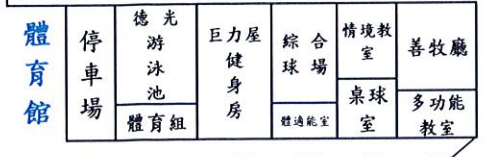 體育館
停車場
德光游泳池
體育組
巨力屋健身房
綜合球場
體適能室
情境教室
桌球室
善牧廳
多功能教室